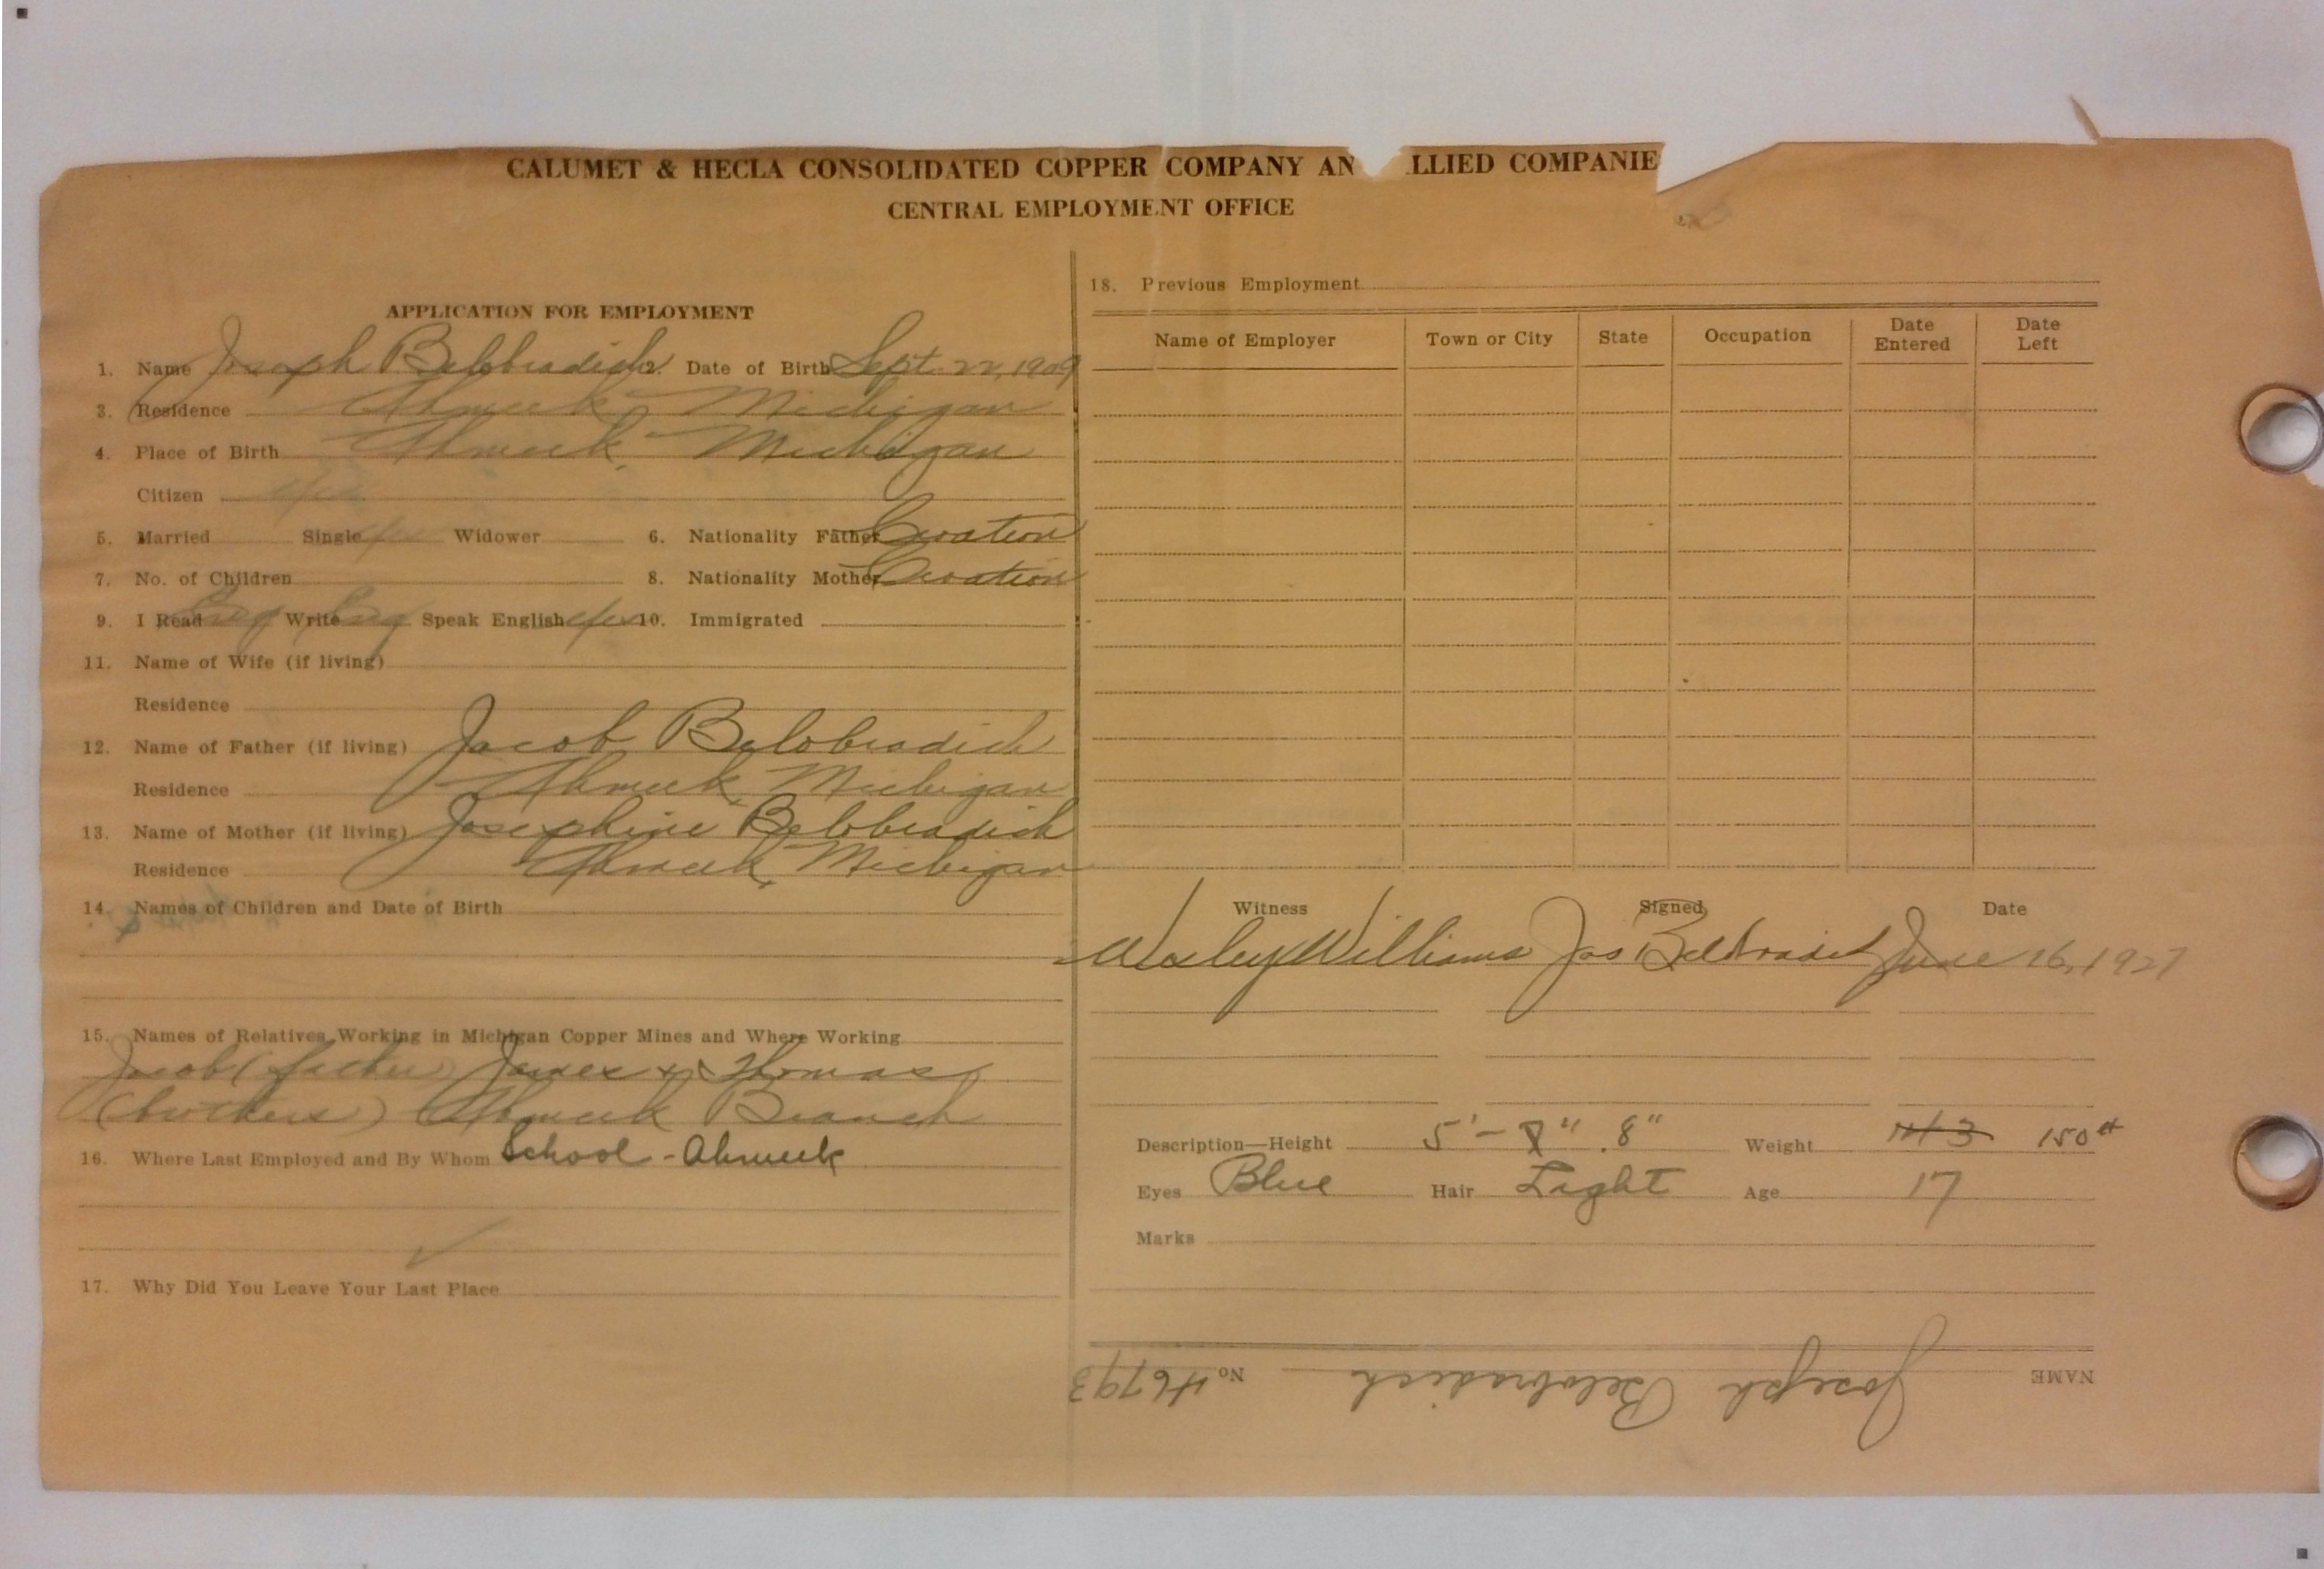 CALUMET & HECLA CONSOLIDATED COPPER COMPANY AN LLIED COMPANIE
CENTRAL EMPLOYMENT OFFICE
APPLICATION FOR EMPLOYMENT
1. Name Joseph Belobradich 2. Date of Birth Sept. 22, 1909
3. Residence Ahmeek, Michigan
4. Place of Birth Ahmeek, Michigan
Citizen yes
5. Married Single yes Widower 6. Nationality Father Croation
7. No. of Children 8. Nationality Mother Croation
9. I Read Eng Write Eng Speak English yes 10. Immigrated
11. Name of Wife (if living)
Residence
12. Name of Father (if living) Jacob Belobradich
Residence Ahmeek, Michigan
13. Name of Mother (if living) Josephine Belobradich
Residence Ahmeek, Michigan
14. Names of Children and Date of Birth
15. Names of Relatives Working in Michigan Copper Mines and Where Working
Jacob (father) James & Thomas
(brothers) Ahmeek Branch
16. Where Last Employed and By Whom School - Ahmeek
17. Why Did You Leave Your Last Place
18. Previous Employment
Name of Employer Town or City State Occupation Date Entered Date Left
Witness Signed Date
Wesley Williams Jos June 16, 1927
Description—Height 5' - 8" Weight 150#
Eyes Blue Hair Light Age 17
Marks
NAME Joseph Belobradich No 46793